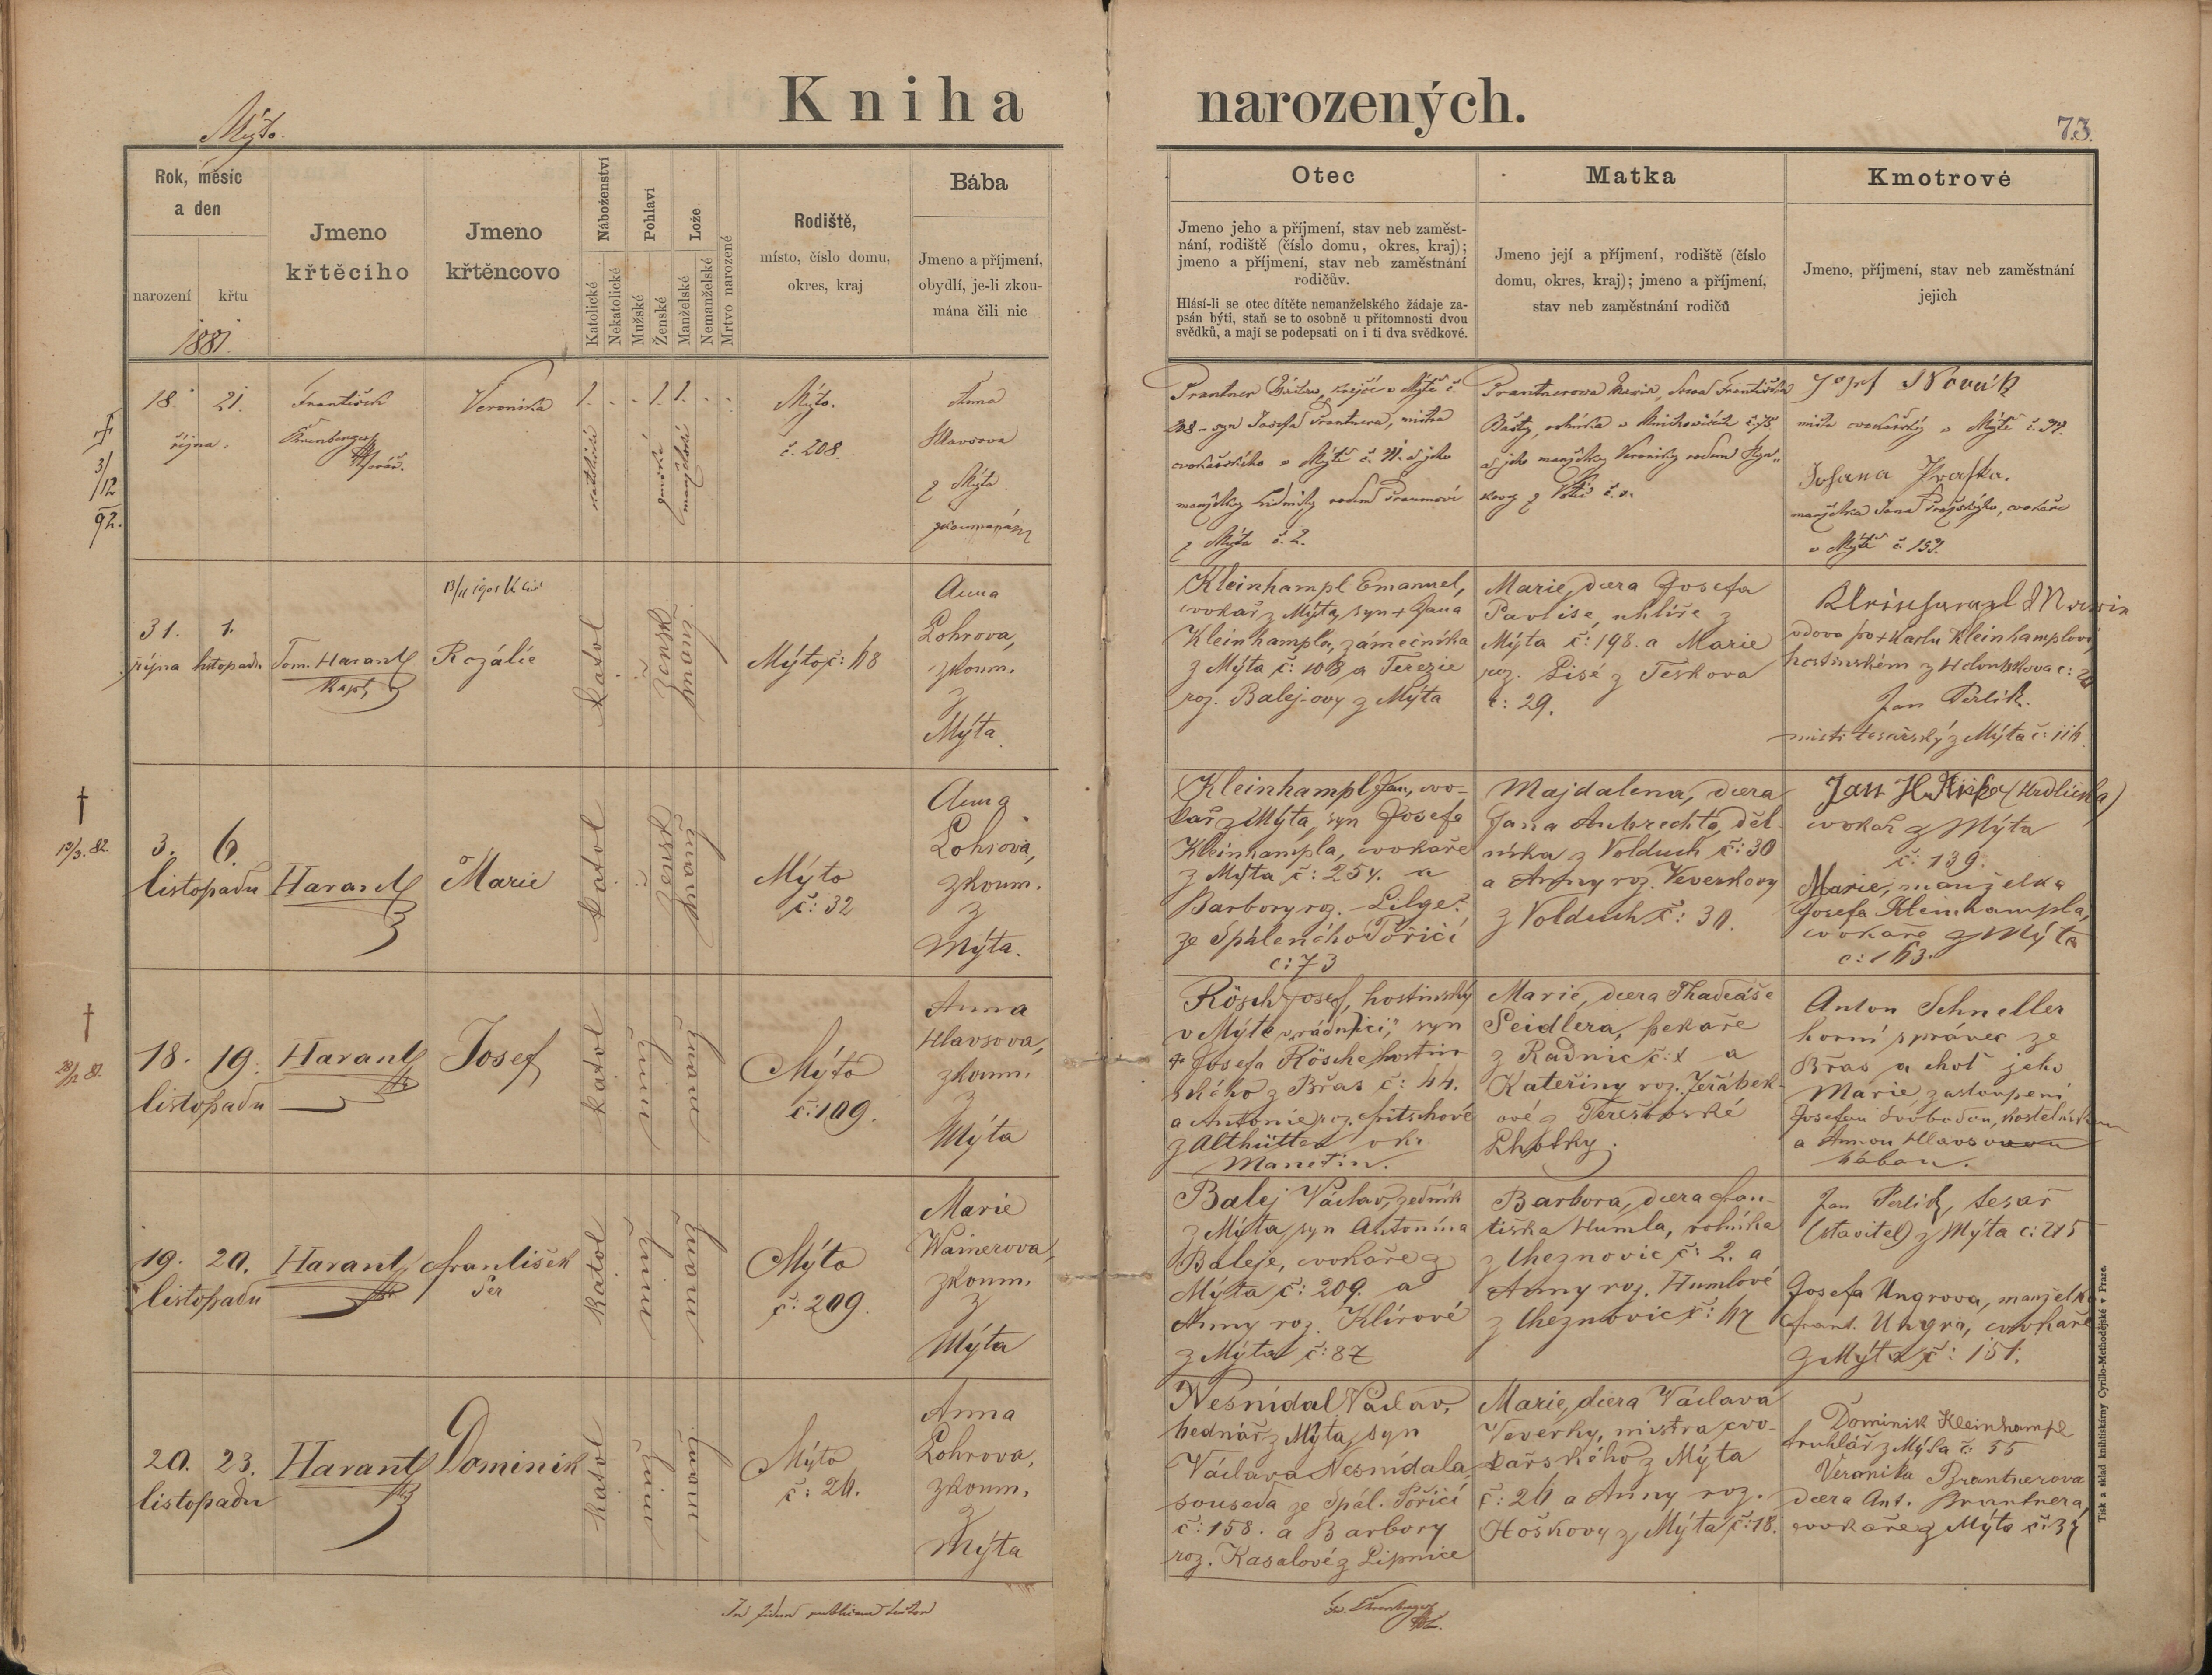 Kniha narozených.
Mýto.
73.
Rok, měsíc
a den
narození
křtu
1881.
Jmeno
křtěcího
Jmeno
křtěncovo
Náboženství
Katolické
Nekatolické
Pohlaví
Mužské
Ženské
Lože
Manželské
Nemanželské
Mrtvo narozené
Rodiště,
místo, číslo domu,
okres, kraj
Bába
Jmeno a příjmení,
obydlí, je-li zkou-
mána čili nic
Otec
Jmeno jeho a příjmení, stav neb zaměst-
nání, rodiště (číslo domu, okres, kraj);
jmeno a příjmení, stav neb zaměstnání
rodičův.
Hlásí-li se otec dítěte nemanželského žádaje za-
psán býti, staň se to osobně u přítomnosti dvou
svědků, a mají se podepsati on i ti dva svědkové.
Matka
Jmeno její a příjmení, rodiště (číslo
domu, okres, kraj); jmeno a příjmení,
stav neb zaměstnání rodičů
Kmotrové
Jmeno, příjmení, stav neb zaměstnání
jejich
†
3/12
92.
18. 21.
října.
František
Veronika
1. . . 1. 1. . .
katolické
ženské
manželské
Mýto.
č. 208.
Anna
Hlavsova
z Mýta
zkoumaná
Prantner Václav, krejčí v Mýtě č.
208 - syn Josefa Prantnera, mistra
cvokařského v Mýtě č. a jeho
manželky Ludmily rodem
z Mýta č. 2.
Prantnerova Marie, dcera Františka
Bašty, rolníka v č. 75.
a jeho manželky Veroniky rodem
z č.
Josef Novák
mistr cvokařský v Mýtě č. 97.
manželka Jana Pražského, cvokaře
v Mýtě č. 157.
31. 1.
října listopadu
Tom. Harant
Kapl.
Rozálie
katol
žensk
Mýto č:
Anna
Lohrova,
zkoum.
z
Mýta.
Kleinhampl Emanuel,
cvokař z Mýta, syn + Jana
Kleinhampla, zámečníka
z Mýta č: 108 a Terezie
roz. Balej-ovy z Mýta
Marie, dcera Josefa
Pavlise, uhlíře z
Mýta č: 198. a Marie
roz. Lisé z Těškova
č: 29.
vdova po + Karlu Kleinhamplovi,
hostinském z Holoubkova č:
Jan Perlík.
mistr tesařský z Mýta č:
†
13/3. 82.
3. 6.
listopadu
Harant
Marie
katol
žensk
Mýto
č: 32
Anna
Lohrova,
zkoum.
z
Mýta.
Kleinhampl Jan, cvo-
kař z Mýta, syn Josefa
Kleinhampla, cvokaře
z Mýta č: 254. a
Barbory roz.
ze Spáleného Poříčí
č: 73
Majdalena, dcera
Jana Aubrechta, děl-
níka z Volduch č: 30
a Anny roz. Veverkovy
z Volduch č: 30.
Jan (Hrdlička)
cvokař z Mýta
č: 139.
Marie, manželka
Josefa Kleinhampla,
cvokaře z Mýta
č: 163.
†
18. 19.
listopadu
Harant
Josef
katol
Mýto
č: 109.
Anna
Hlavsova,
zkoum.
z
Mýta
Rösch Josef, hostinský
v Mýtě „v rádnici“, syn
+ Josefa Rösche hostin-
ského z Břas č: 44.
a Antonie roz. Fritschové
z Althütten okr.
Manetín.
Marie, dcera Thadeáše
Seidlera, pekaře
z Radnic č: a
Kateřiny roz. Jeřábek-
ové z
Lhotky.
Anton Schneller
horní správce ze
Břas a choť jeho
Marie zastoupeni
Josefem Svobodou, kostelníkem
a Annou Hlavsovou
bábou.
19. 20.
listopadu
Harant
František
Ser
katol
Mýto
č: 209.
Marie
Wainerova,
zkoum.
z
Mýta
Balej Václav, zedník
z Mýta, syn Antonína
Baleje, cvokaře z
Mýta č: 209. a
Anny roz. Klírové
z Mýta č: 87
Barbora, dcera Fran-
tiška Humla, rolníka
z Cheznovic č: 2. a
Anny roz. Humlové
z Cheznovic č: 47
Jan Perlík, tesař
(stavitel) z Mýta č: 215
Josefa Ungrova, manželka
Frant. Ungra, cvokaře
z Mýta č: 151.
20. 23.
listopadu
Harant
Dominik
katol
Mýto
č: 26.
Anna
Lohrova,
zkoum.
z
Mýta
Nesnídal Václav,
bednář z Mýta, syn
Václava Nesnídala,
souseda ze Spál. Poříčí
č: 158. a Barbory
roz. Kasalové z Lipnice
Marie, dcera Václava
Veverky, mistra cvo-
kařského z Mýta
č: 26 a Anny roz.
Hoškovy z Mýta č: 18.
Dominik Kleinhampl
truhlář z Mýta č: 55
Veronika Brantnerova
dcera Ant. Brantnera,
cvokaře z Mýta č: 37
In fidem publicam
Tisk a sklad knihtiskárny Cyrillo-Methodějské v Praze.